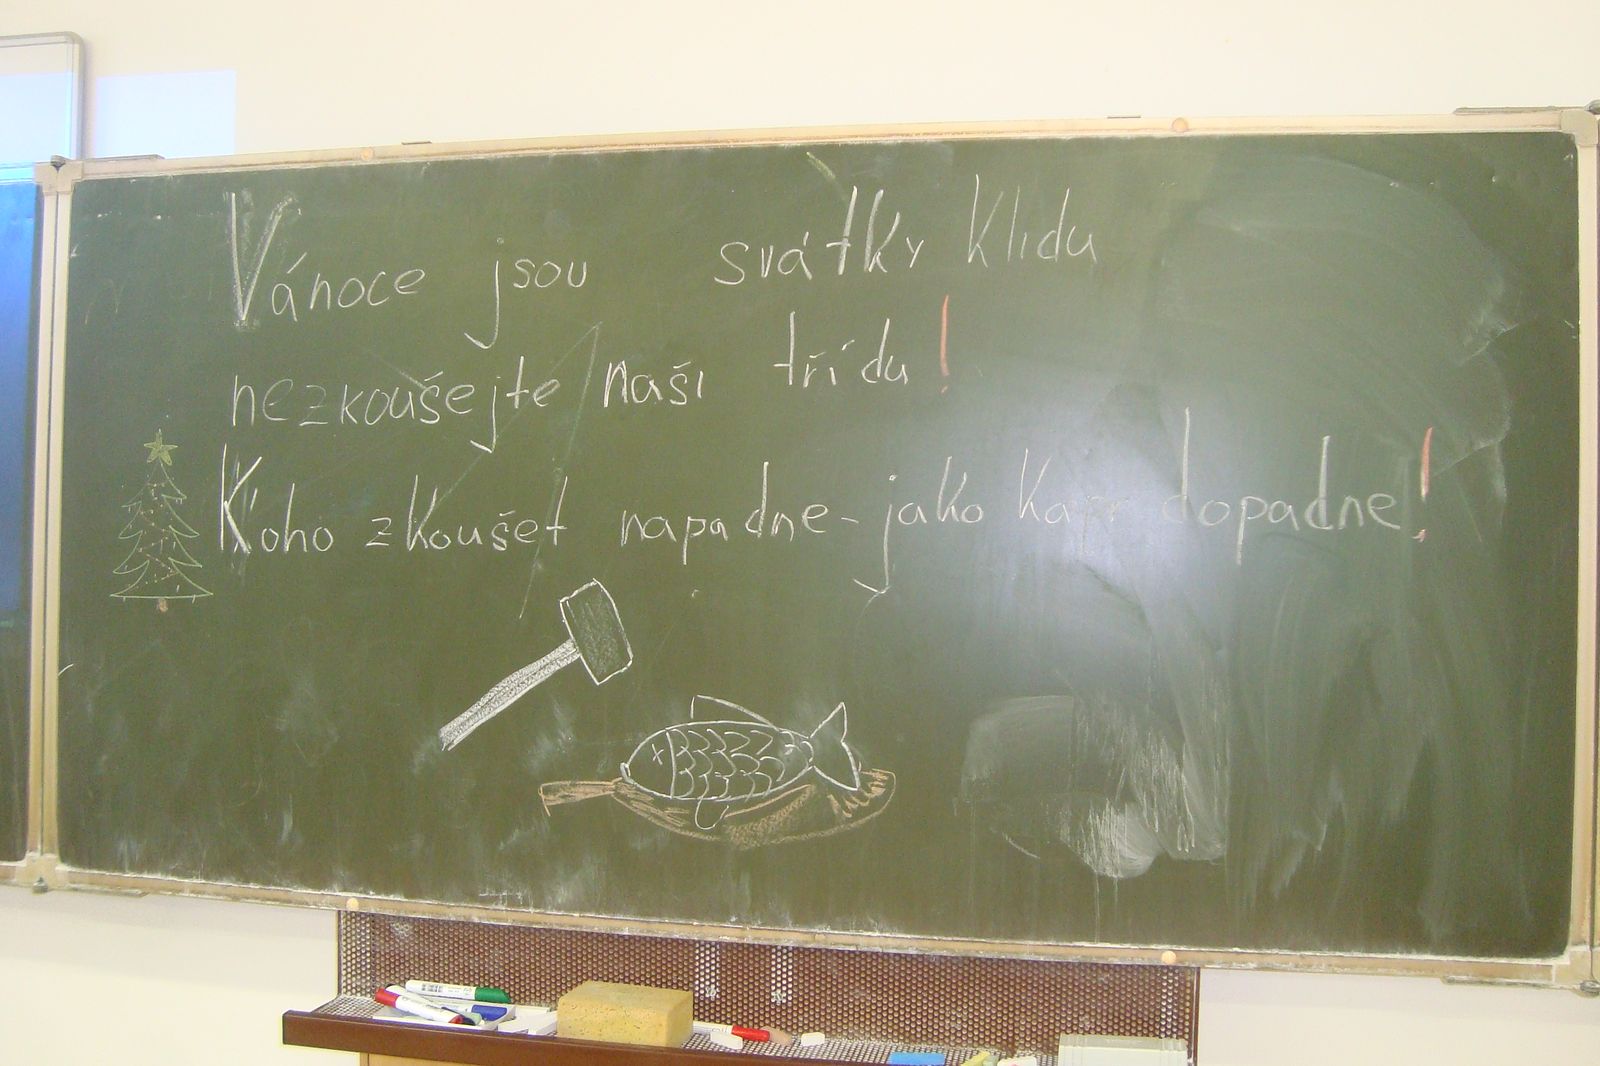 Vánoce jsou svátky klidu
nezkoušejte naši třídu!
Koho zkoušet napadne - jako kapr dopadne!